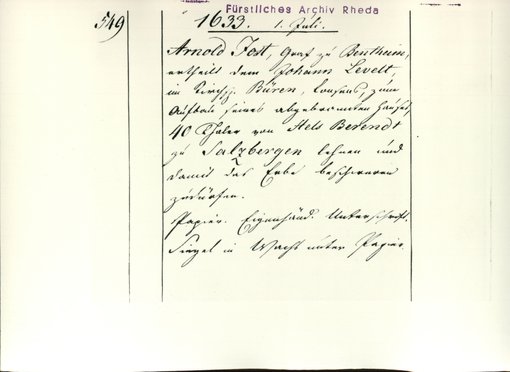 Fürstliches Archiv Rheda
549
1633. 1. Juli.
Arnold Jost, Graf zu Bentheim,
ertheilt dem Johann Levelt,
im Kirchsp. Büren, Consens, zum
Aufbau seines abgebrannten Hauses,
40 Thaler von Hels Berendt
zu Salzbergen lehnen und
damit das Erbe beschweren
zu dürfen.
Papier. Eigenhänd. Unterschrift.
Siegel in Wachs unter Papier.